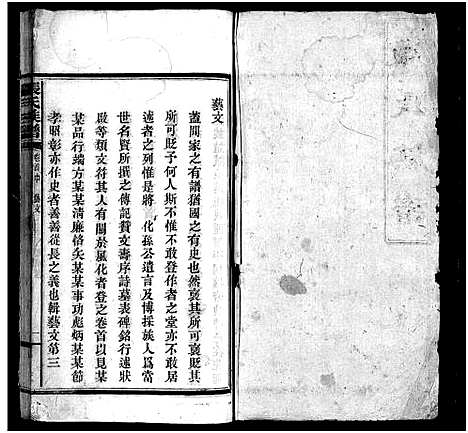 藝文
蓋聞家之有譜猶國之有史也然褒其所可褒貶其
所可貶予何人斯不惟不敢登作者之堂亦不敢居
述者之列惟是將 化孫公遺言及博採族人爲當
世名賢所撰之傳記贊文壽序詩墓表碑銘行述狀
啟等類文苻其人有關於風化者登之卷首以見某
某品行端方某某淸廉恪矢某某事功彪炳某某節
孝昭彰亦作史者善善從長之義也輯藝文第三
氏族譜
藝文
一